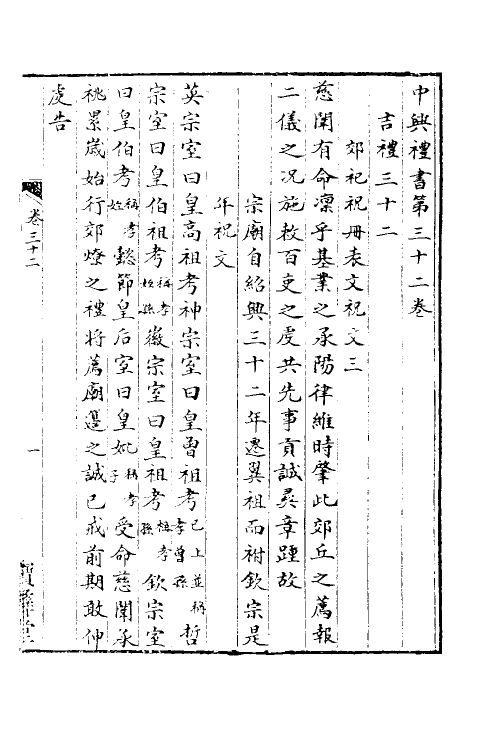 中興禮書第三十二卷
吉禮三十二
郊祀祝冊表文祝文三
慈闈有命凜乎基業之承陽律維時肇此郊丘之薦報
二儀之況施敕百吏之虔共先事貢誠彛章踵故
宗廟自紹興三十二年遷翼祖而祔欽宗是
年祝文
英宗室曰皇高祖考神宗室曰皇曾祖考已上並稱孝曾孫哲
宗室曰皇伯祖考稱孝姪孫徽宗室曰皇祖考稱孝孫欽宗室
曰皇伯考稱孝姪懿節皇后室曰皇妣稱孝子受命慈闈承
祧累歲始行郊燎之禮將薦廟邊之誠已戒前期敢伸
虔告
卷三十二
一